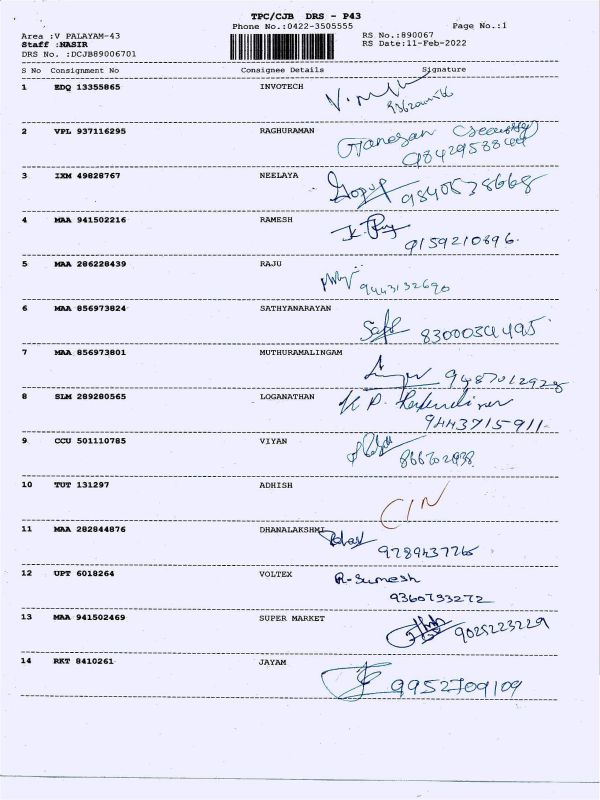 TPC/CJB DRS - P43
Phone No.:0422-3505555 Page No.:1
Area :V PALAYAM-43 RS No.:890067
Staff :NASIR RS Date:11-Feb-2022
DRS No. :DCJB89006701
S No Consignment No Consignee Details Signature
1 EDQ 13355865 INVOTECH
2 VPL 937116295 RAGHURAMAN Ganesan (Security)
3 IXM 49828767 NEELAYA
9840538668
4 MAA 941502216 RAMESH
9159210896
5 MAA 286228439 RAJU
9443132690
6 MAA 856973824 SATHYANARAYAN
8300034495
7 MAA 856973801 MUTHURAMALINGAM
9487012928
8 SLM 289280565 LOGANATHAN
9443715911
9 CCU 501110785 VIYAN
10 TUT 131297 ADHISH
CIN
11 MAA 282844876 DHANALAKSHMI
9789437766
12 UPT 6018264 VOLTEX R-Sumesh
9360733272
13 MAA 941502469 SUPER MARKET
9025223229
14 RKT 8410261 JAYAM
9952709109